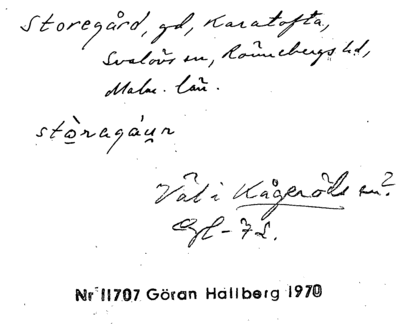 Storegård, gd, Karatofta,
Svalövs sn, Rönnebergs hd,
Malm. län.
stòragáur
Väl i Kågeröds sn?
Nr 11707 Göran Hallberg 1970